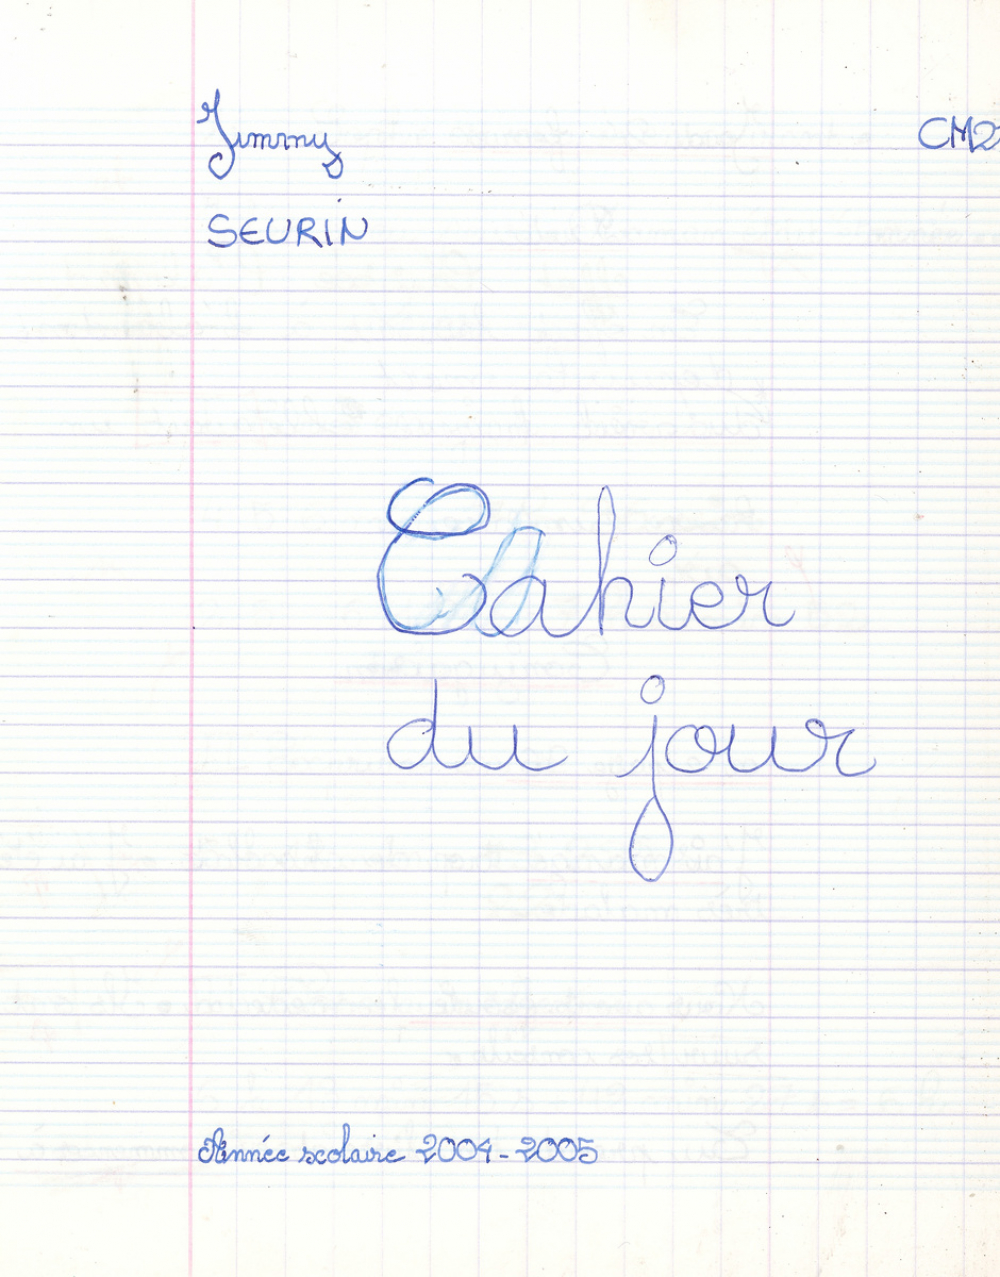 Jimmy
CM2
SEURIN
Cahier
du jour
Année scolaire 2004-2005